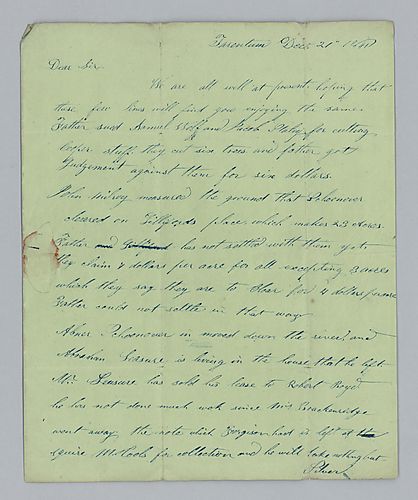 Tarentum Dec. 21st
Dear Sir
We are all well at present hoping that
these few lines will find you enjoying the same.
Father sued Samuel Wolf and Jacob for cutting
Cooper stuff they cut six trees and father got
Judgement against them for six dollars.
John measured the ground that Schoonover
cleared on place which makes 23 Acres.
Father and has not settled with them yet
they claim 7 dollars per acre for all excepting 3 acres
which they say they are to Clear for 4 dollars per acre
Father could not settle in that way
Abner Schoonover in moved down the river and
Abraham Leasure is living in the house that he left
Mr. Leasure has sold his lease to Robert Boyd
he has not done much work since Mr Brackenridge
went away the note which has is left at the
Squire McCook for collection and he will take nothing but
Silver